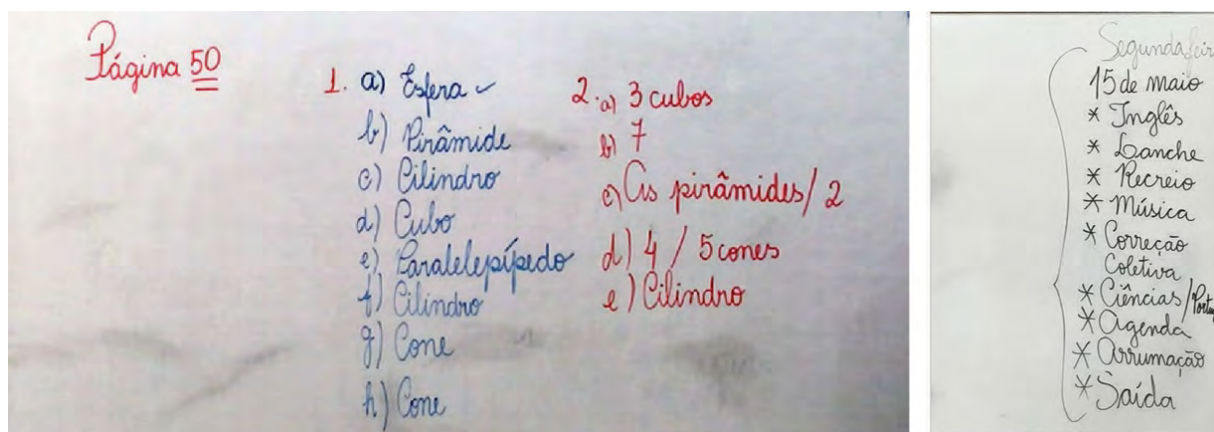 Página 50
1. a) Esfera
b) Pirâmide
c) Cilindro
d) Cubo
e) Paralelepípedo
f) Cilindro
g) Cone
h) Cone
2. a) 3 cubos
b) 7
c) As pirâmides / 2
d) 4 / 5 cones
e) Cilindro
Segunda
15 de maio
* Inglês
* Lanche
* Recreio
* Música
* Correção
Coletiva
* Ciências /
* Agenda
* Arrumação
* Saída